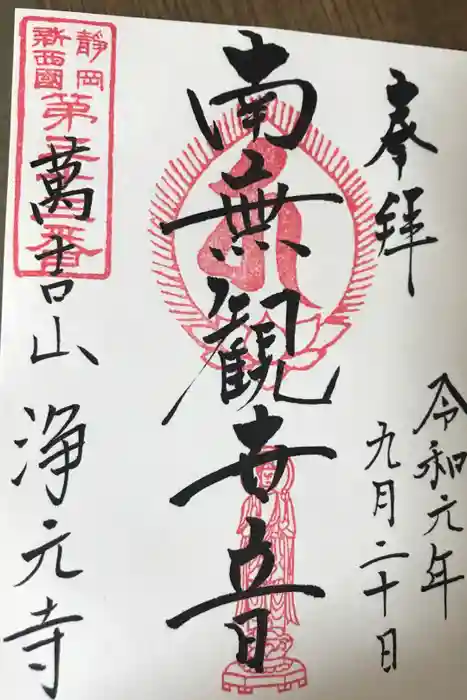 奉拝
令和元年
九月二十日
南無觀世音
静岡
新西國
萬吉山
浄元寺